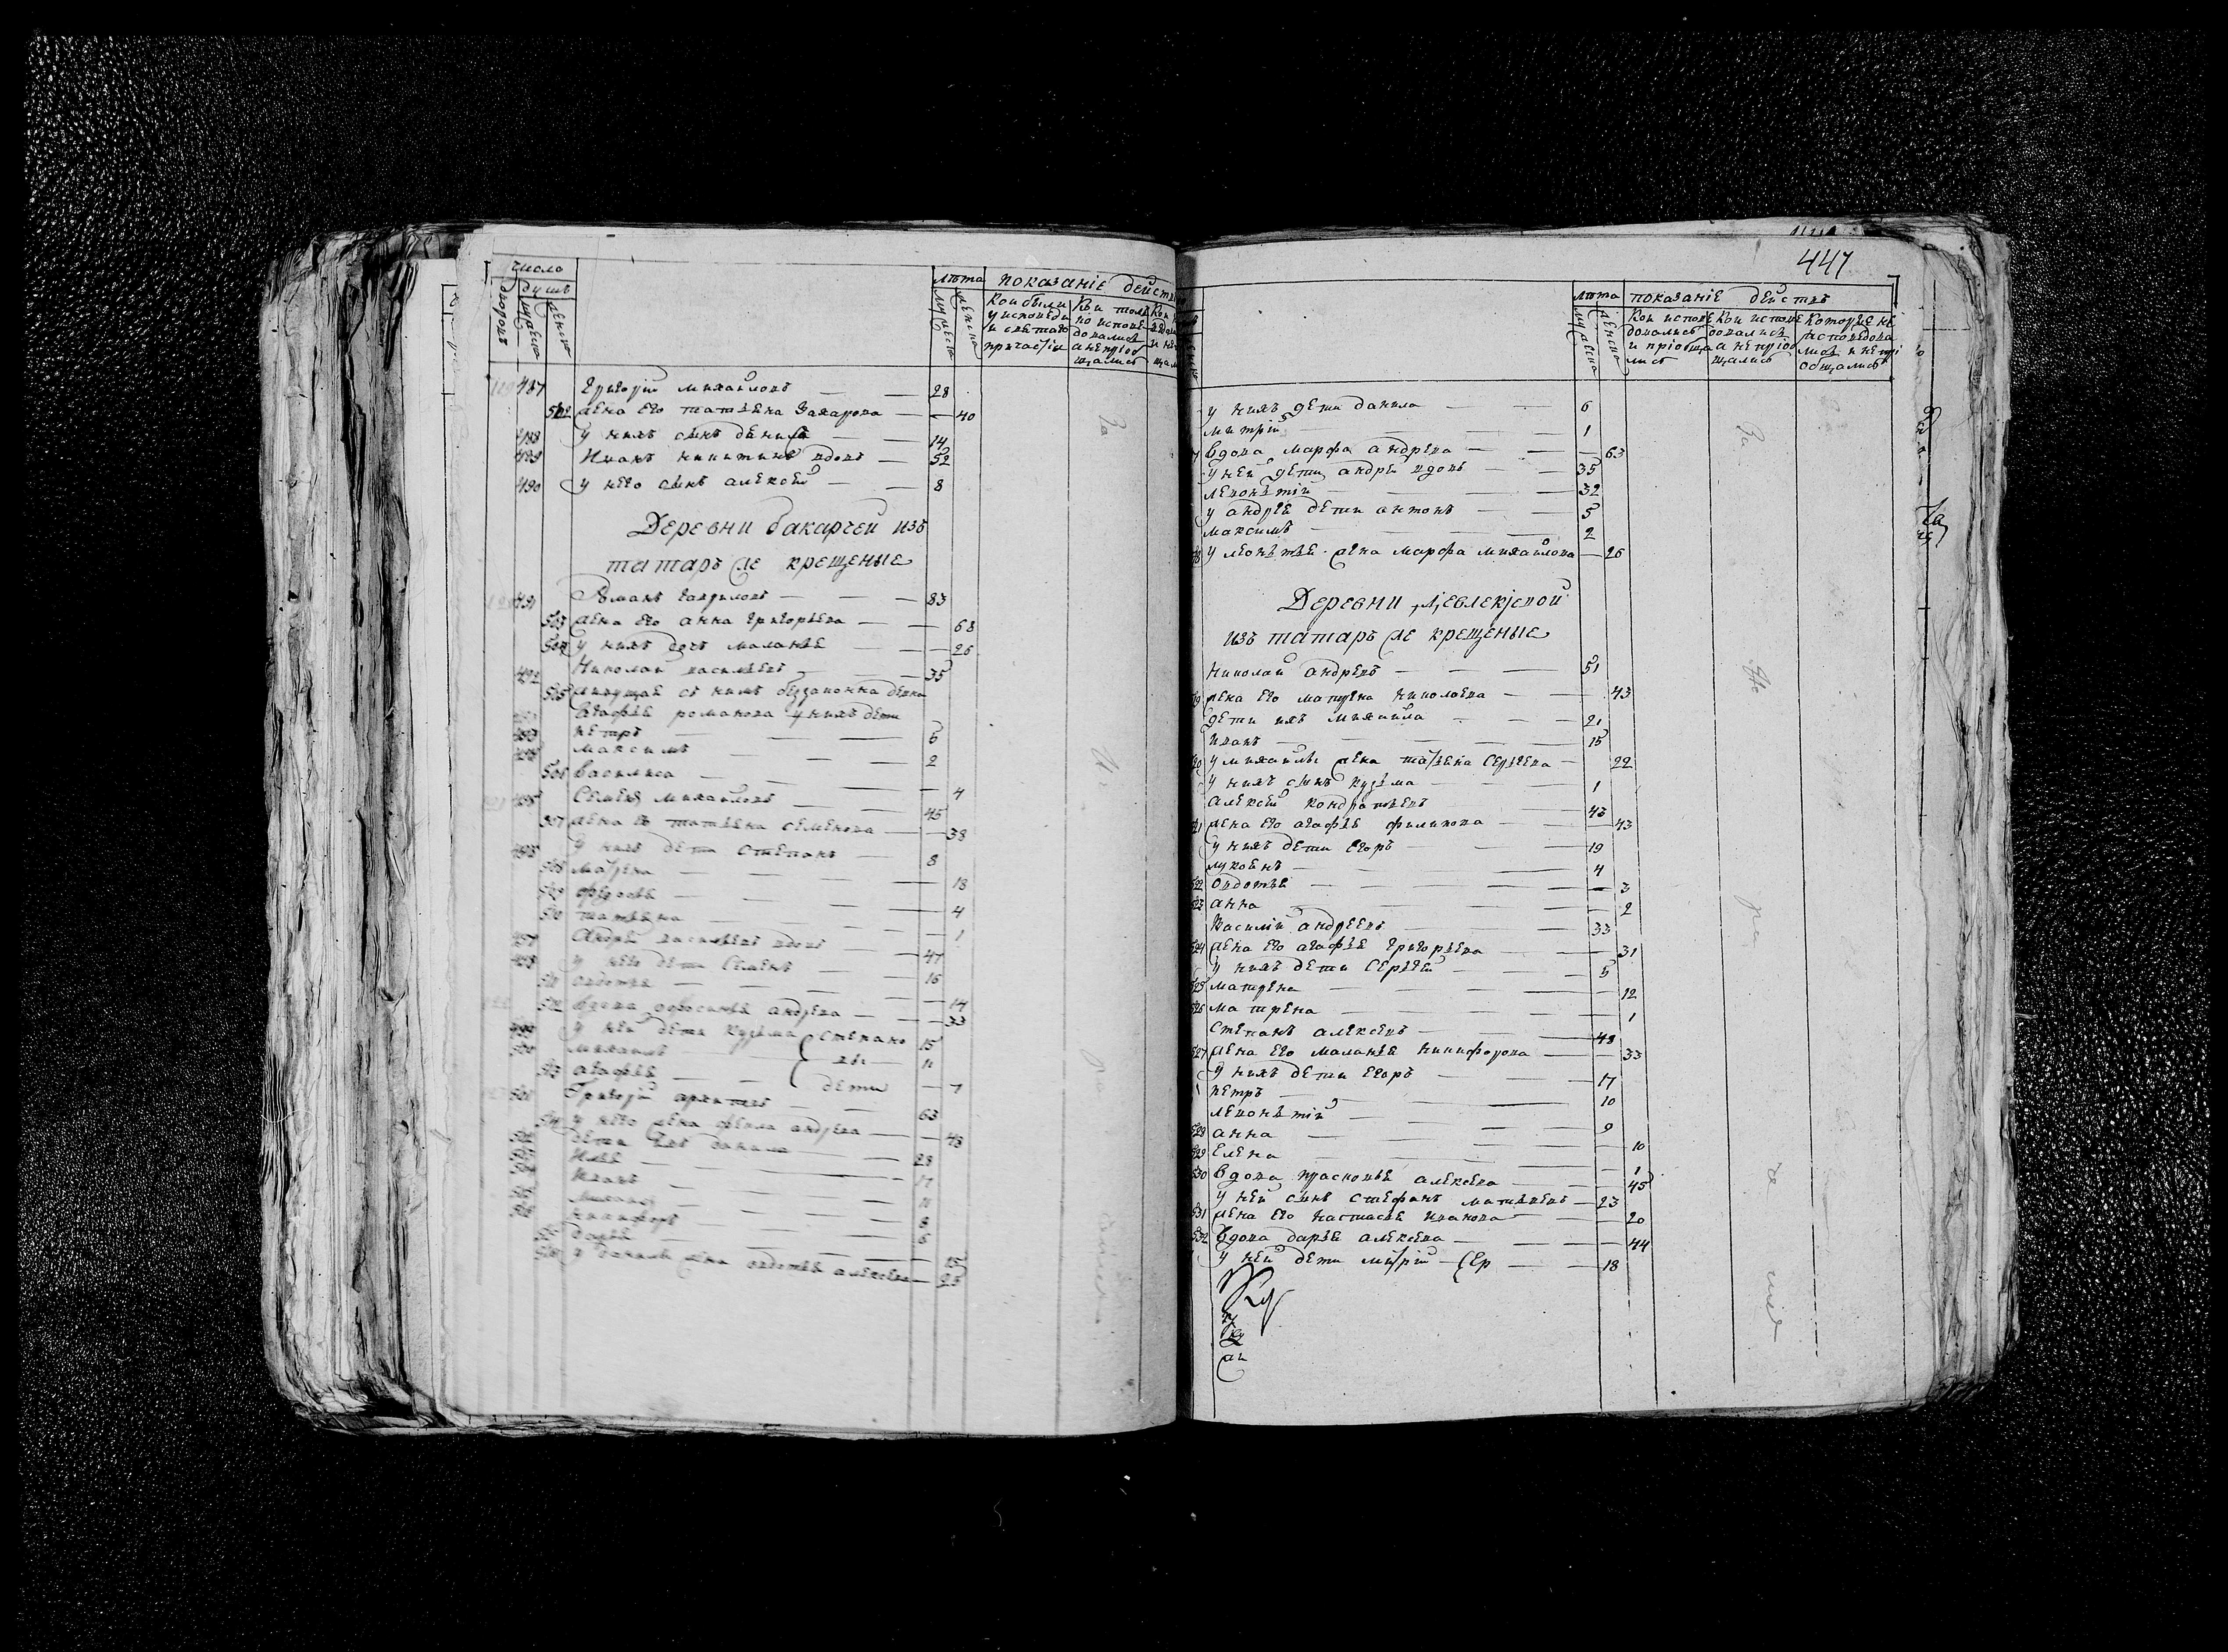 число
душъ
дворовъ
мужеска
женска
лѣта
мужеска
женска
показаніе дейст
Кои были у исповеди и святаго причастіи
Кои толко исповедовалис а непріобщалис
487 Григорій михаиловъ — 28
502 жена его татьяна Захарова — 40
488 у нихъ сынъ данила — 14
489 Иванъ никитинъ вдовъ — 52
490 у него сынъ алексей — 8
Деревни бакарчей изъ
татаръ же крещеные
491 Романъ гавриловъ — 83
503 жена его анна григорьева — 68
504 у нихъ дочь маланья — 26
492 Николай васильевъ — 35
505 живущая съ нимъ беззаконна девка
агафья романова у нихъ дети
петръ — 6
максимъ — 2
506 василиса — 4
495 Семенъ михаиловъ — 45
507 жена ево татьяна семенова — 38
496 у нихъ дети степанъ — 8
508 матрена — 13
509 федосья — 4
510 татьяна — 1
497 Андрей васильевъ вдовъ — 47
498 у него дети Семенъ — 16
511 овдотья — 14
512 вдова афросинья андреева — 33
499 у ней дети кузьма степано 15
500 михаилъ вы 11
513 агафья дети — 7
501 Григорій архиповъ — 63
514 у него жена фекла андреева — 48
502 дети ихъ данила — 28
503 илья — 17
504 иванъ — 11
505 михаилъ — 8
506 никифоръ — 6
515 дарья — 15
516 у данилы жена овдотья алексеева — 25
447
лѣта
мужеска
женска
показаніе действъ
Кои исповедовались и пріобщались
Кои исповедовались а непріобщались
Которые не исповедовались и непріобщались
у нихъ дети данила — 6
митрій — 1
вдова марфа андреева — 63
у ней дети андрей вдовъ — 35
левонтій — 32
у андрея дети антонъ — 5
максимъ — 2
у леонтья жена марфа михаилова — 26
Деревни Мевлекесвой
изъ татаръ же крещеные
Николай андреевъ — 51
жена его матрена николаева — 43
дети ихъ михаила — 21
иванъ — 15
у михаилы жена татьяна Сергеева — 22
у нихъ сынъ кузьма — 1
алексей кондратьевъ — 43
521 жена его агафья филипова — 43
у нихъ дети егоръ — 19
лукоянъ — 4
522 овдотья — 3
523 анна — 2
Василій андреевъ — 33
524 жена его агафья григорьева — 31
у нихъ дети сергей — 5
525 матрена — 12
526 матрена — 1
Степанъ алексеевъ — 48
527 жена его маланья никифорова — 33
у нихъ дети егоръ — 17
петръ — 10
левонтій — 9
528 анна — 10
529 елена — 1
530 вдова прасковья алексеева — 45
у ней сынъ стефанъ матвеевъ — 23
531 жена его настасья иванова — 20
532 вдова дарья алексеева — 44
у ней дети митрій — 18